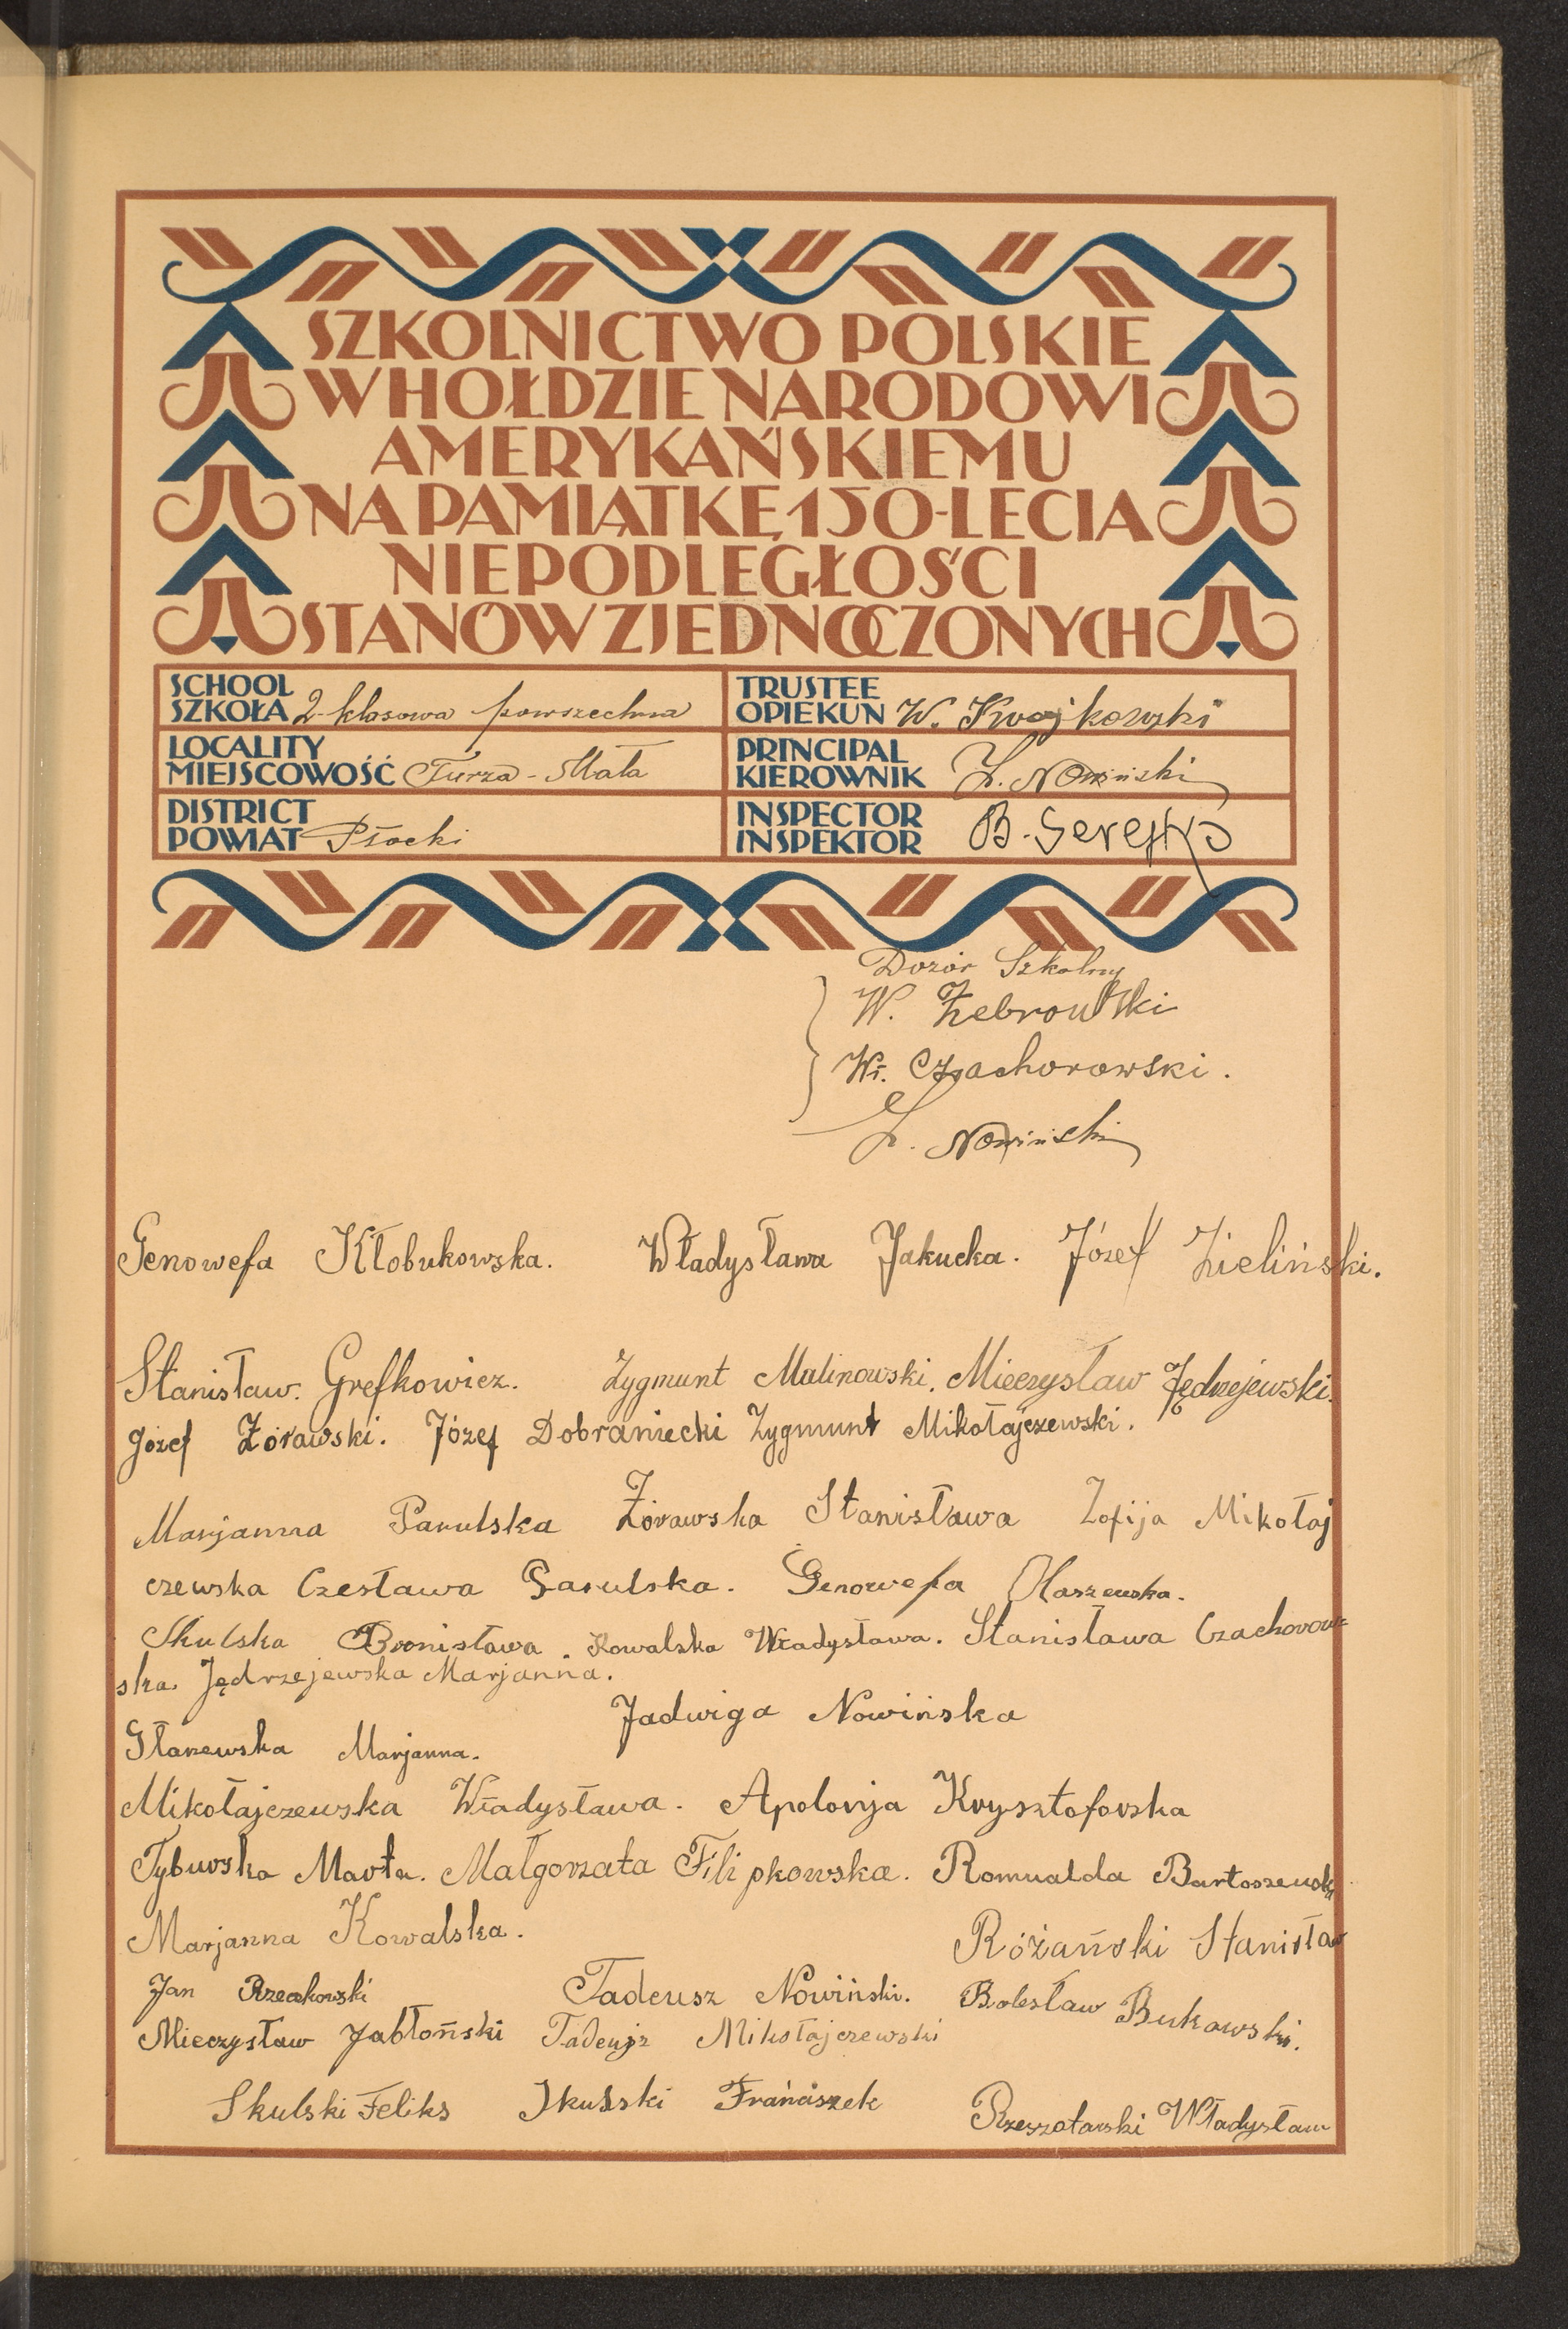 SZKOLNICTWO POLSKIE
W HOŁDZIE NARODOWI
AMERYKAŃSKIEMU
NA PAMIĄTKĘ 150-LECIA
NIEPODLEGŁOŚCI
STANÓW ZJEDNOCZONYCH
SCHOOL
SZKOŁA 2-klasowa powszechna
LOCALITY
MIEJSCOWOŚĆ Turza-Mała
DISTRICT
POWIAT Płocki
TRUSTEE
OPIEKUN W. Kwojkowski
PRINCIPAL
KIEROWNIK Z. Nowiński
INSPECTOR
INSPEKTOR B. Serejko
Dozór Szkolny
W. Żebrowski
Wł. Czachorowski.
Z. Nowiński
Genowefa Kłobukowska. Władysława Jakucka. Józef Zieliński.
Stanisław. Grefkowicz. Zygmunt Malinowski. Mieczysław Jędrzejewski.
Józef Żórawski. Józef Dobraniecki Zygmunt Mikołajczewski.
Marjanna Parulska Żórawska Stanisława Zofija Mikołaj
czewska Czesława Parulska. Genowefa Olszewska.
Skulska Bronisława. Kowalska Władysława. Stanisława Czachorow-
ska. Jędrzejewska Marjanna.
Jadwiga Nowińska
Marjanna.
Mikołajczewska Władysława. Apolonja Krysztoforska
Tyburska Marta. Małgorzata Filipkowska. Romualda Bartoszewska
Marjanna Kowalska. Różański Stanisław
Jan Rzeczkowski Tadeusz Nowiński. Bolesław Bukowski.
Mieczysław Jabłoński Tadeusz Mikołajczewski
Skulski Feliks Skulski Franciszek Rzeszotarski Władysław